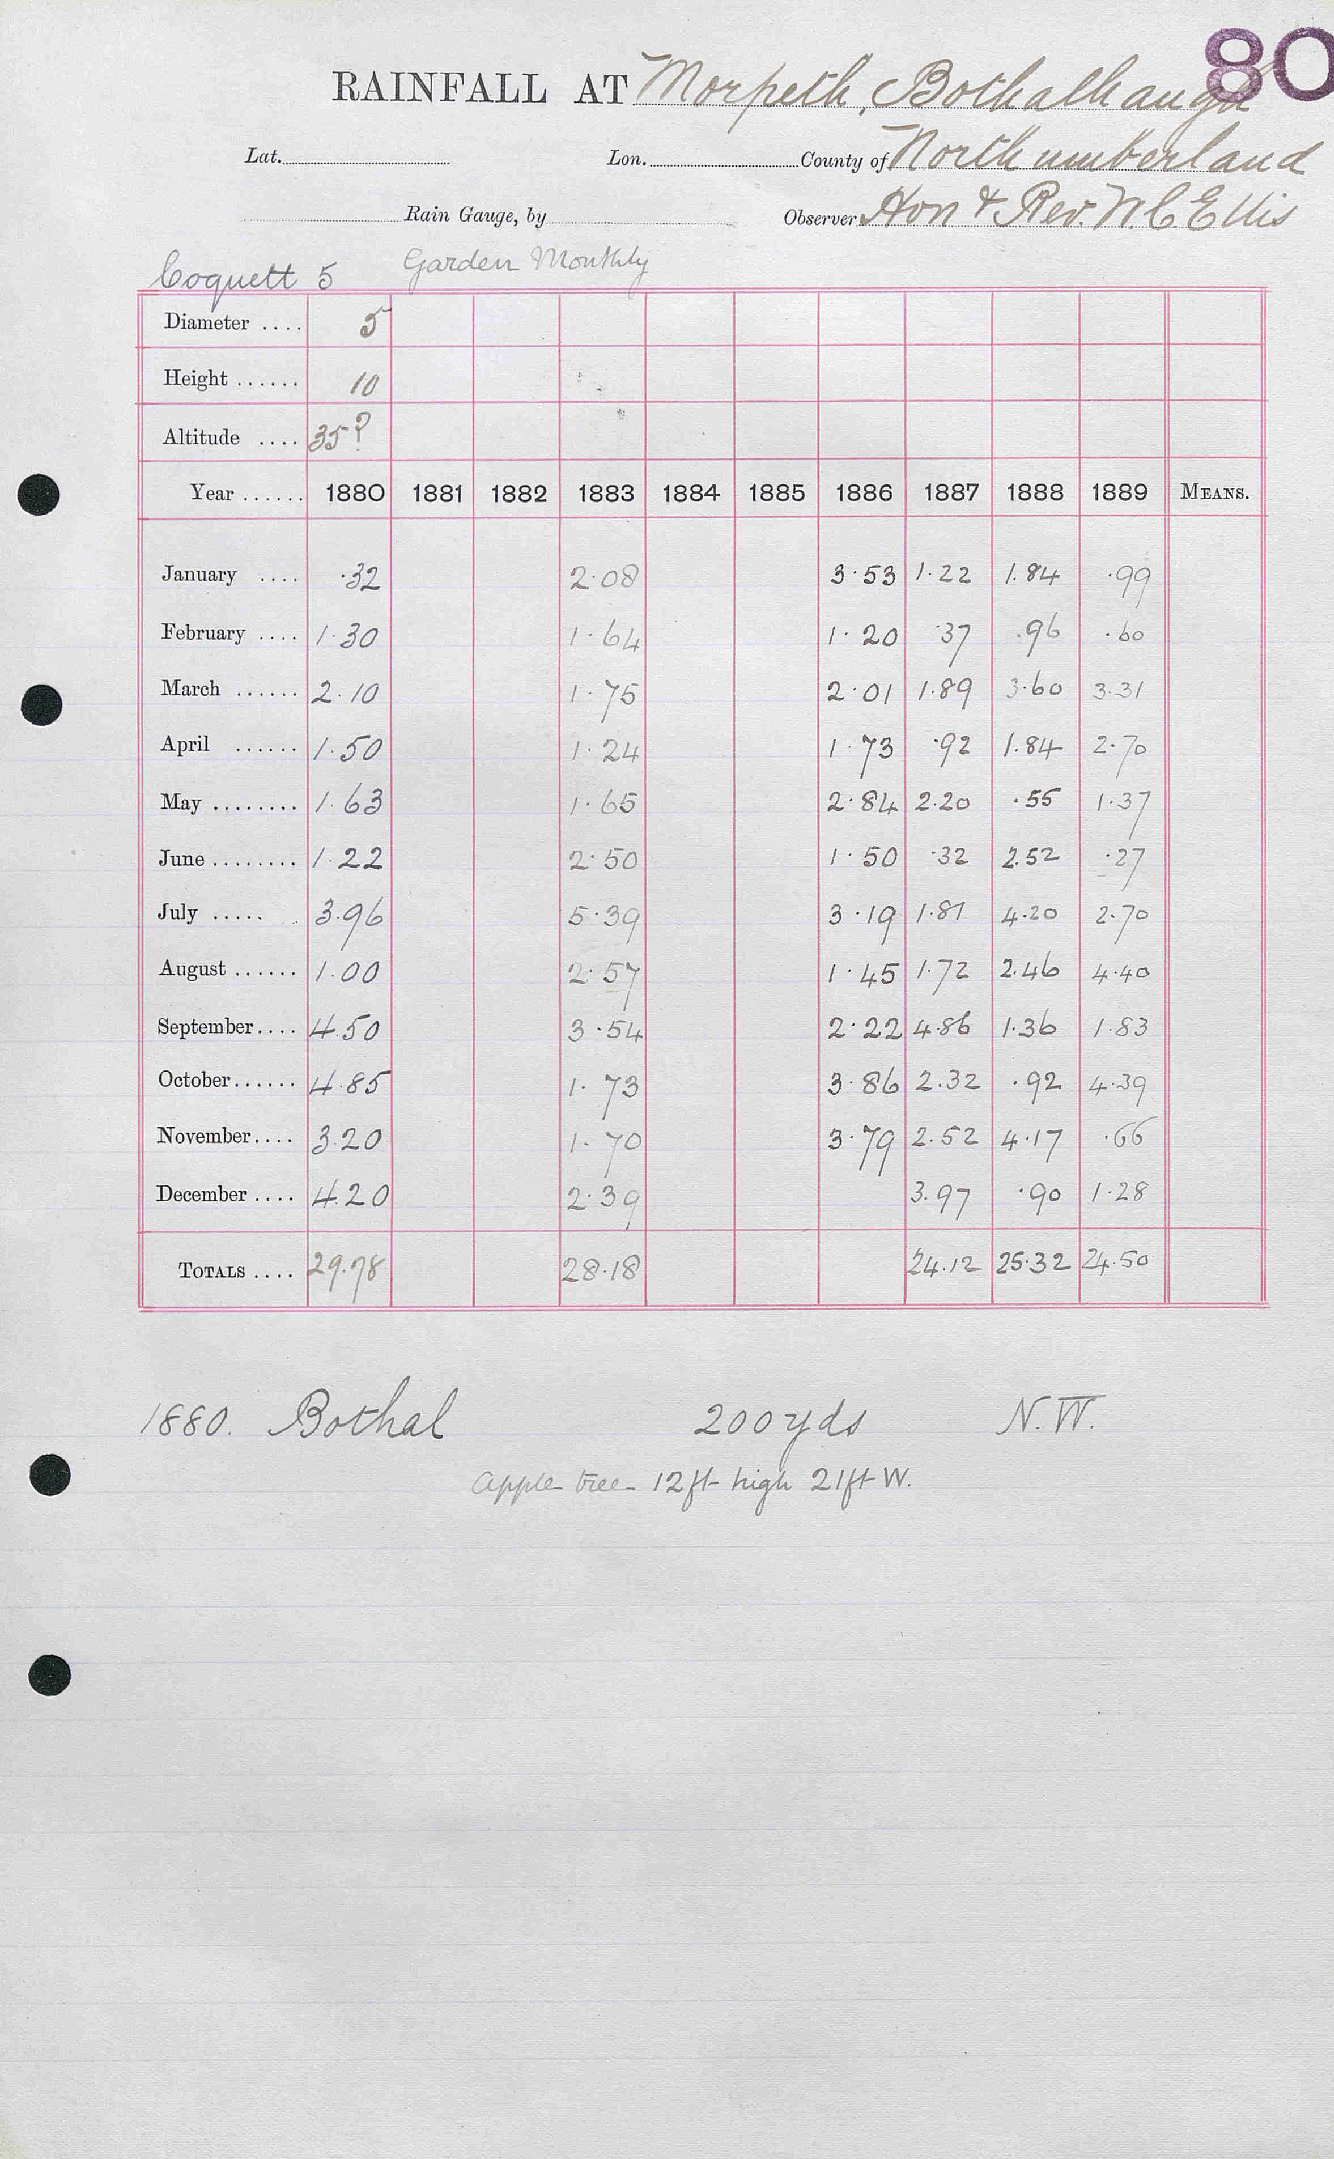 80
RAINFALL AT Morpeth, Bothalhaugh
Lat. Lon. County of Northumberland
Rain Gauge, by Observer Hon & Rev. W. C Ellis
Coquett 5 Garden Monthly
Diameter .... 5
Height ...... 10
Altitude .... 35?
Year ...... 1880 1881 1882 1883 1884 1885 1886 1887 1888 1889 MEANS.
January .... ·32 2·08 3·53 1·22 1.84 ·99
February .... 1·30 1·64 1·20 ·37 .96 ·60
March ...... 2·10 1·75 2·01 1·89 3·60 3.31
April ...... 1·50 1·24 1·73 ·92 1.84 2·70
May ........ 1·63 1·65 2·84 2.20 ·55 1·37
June ........ 1·22 2·50 1·50 ·32 2.52 ·27
July ..... 3.96 5·39 3·19 1·81 4·20 2·70
August ...... 1·00 2·57 1·45 1·72 2.46 4·40
September.... 4·50 3·54 2·22 4·86 1·36 1·83
October...... 4·85 1·73 3·86 2·32 ·92 4·39
November.... 3·20 1·70 3·79 2·52 4·17 ·66
December .... 4·20 2·39 3.97 ·90 1·28
TOTALS .... 29·78 28·18 24·12 25·32 24·50
1880. Bothal 200 yds N.W.
Apple tree 12ft high 21ft W.